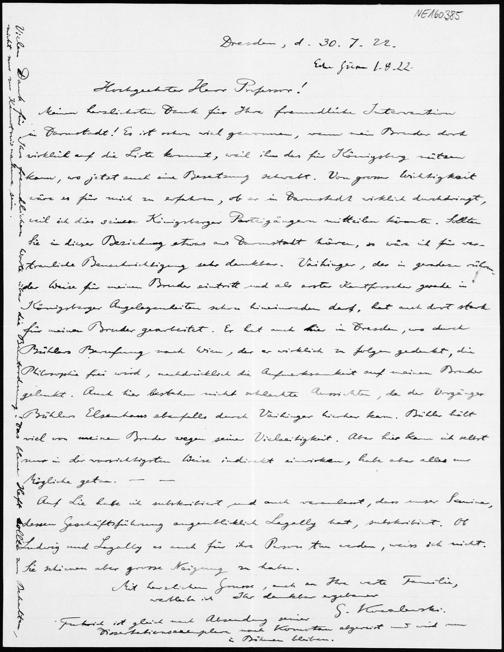 NE160385
Dresden, d. 30.7.22.
1.8.22
Hochgeehrter Herr Professor!
Meinen herzlichsten Dank für Ihre freundliche Intervention
in Darmstadt! Es ist schon viel gewonnen, wenn mein Bruder dort
wirklich auf die Liste kommt, weil ihm das für Königsberg nützen
kann, wo jetzt auch eine Besetzung schwebt. Von grosser Wichtigkeit
wäre es für mich zu erfahren, ob er in Darmstadt wirklich durchdringt,
weil ich dies seinen Königsberger Parteigängern mitteilen könnte. Sollten
Sie in dieser Beziehung etwas aus Darmstadt hören, so wäre ich für ver-
trauliche Benachrichtigung sehr dankbar. Vaihinger, der in geradezu rühren-
der Weise für meinen Bruder eintritt und als erster Kantforscher gerade in
Königsberger Angelegenheiten schon hineinreden darf, hat auch dort stark
für meinen Bruder gearbeitet. Er hat auch hier in Dresden, wo durch
Bühlers Berufung nach Wien, der er wirklich zu folgen gedenkt, die
Philosophie frei wird, nachdrücklich die Aufmerksamkeit auf meinen Bruder
gelenkt. Auch hier bestehen nicht schlechte Aussichten, da der Vorgänger
Bühlers Elsenhans ebenfalls durch Vaihinger hierher kam. Bühler hält
viel von meinem Bruder wegen seiner Vielseitigkeit. Aber hier kann ich selbst
nur in der vorsichtigsten Weise indirekt einwirken, habe aber alles nur
Mögliche getan. — —
Auf Lie habe ich subskribiert und auch veranlasst, dass unser Seminar,
dessen Geschäftsführung augenblicklich Lagally hat, subskribiert. Ob
Ludwig und Lagally es auch für ihre Person tun werden, weiss ich nicht.
Sie schienen aber grosse Neigung zu haben.
Mit herzlichem Grusse, auch an Ihre werte Familie,
verbleibe ich Ihr dankbar ergebener
G. Kowalewski.
ist gleich nach Absendung seiner
Dissertationsexemplare nach abgereist und wird nun
in Böhmen bleiben.
Vielen Dank für Ihre freundlichen Worte über die Das kleine Heft sollen Sie behalten,
nicht nur zur Kenntnisnahme